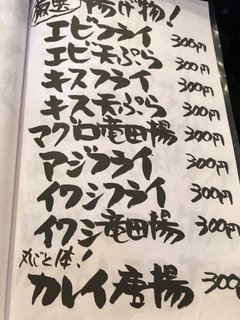 厳選 揚げ物!
エビフライ 300円
エビ天ぷら 300円
キスフライ 300円
キス天ぷら 300円
マグロ竜田揚 300円
アジフライ 300円
イワシフライ 300円
イワシ竜田揚 300円
丸ごと一体!
カレイ唐揚 300